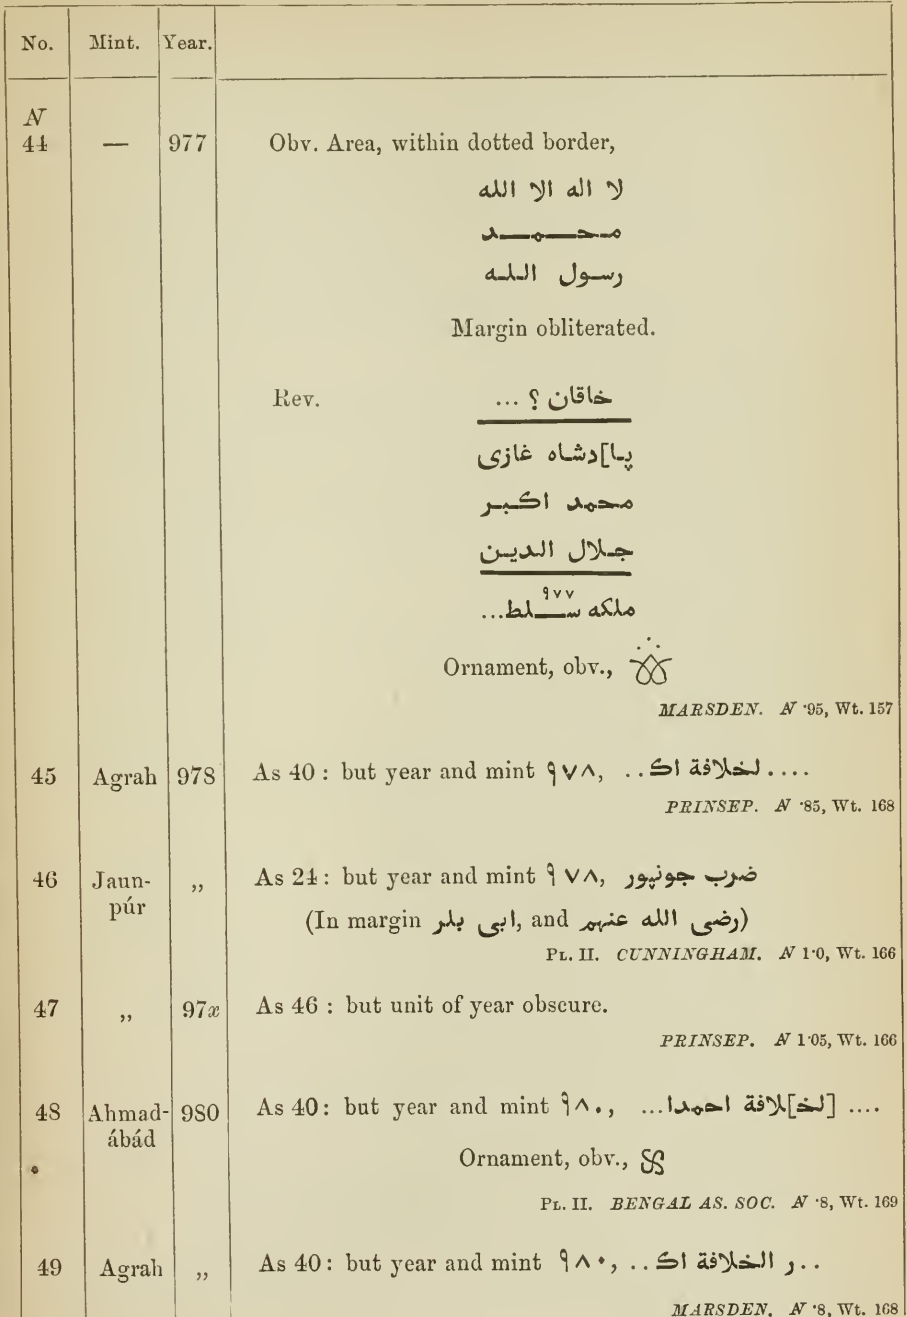 No. Mint. Year.
N
44 — 977 Obv. Area, within dotted border,
لا اله الا الله
محمد
رسول الله
Margin obliterated.
Rev. خاقان ؟ ...
پا]دشاه غازی
محمد اکبر
جلال الدین
۹۷۷
ملکه سلط...
Ornament, obv.,
MARSDEN. N ·95, Wt. 157
45 Agrah 978 As 40 : but year and mint ۹۷۸, .... لخلافة اك ..
PRINSEP. N ·85, Wt. 168
46 Jaun- púr ,, As 24 : but year and mint ۹۷۸, ضرب جونپور
(In margin ابی بلر, and رضی الله عنهم)
PL. II. CUNNINGHAM. N 1·0, Wt. 166
47 ,, 97x As 46 : but unit of year obscure.
PRINSEP. N 1·05, Wt. 166
48 Ahmad- ábád 980 As 40 : but year and mint ۹۸۰, .... [لخ]لافة احمدا...
Ornament, obv.,
PL. II. BENGAL AS. SOC. N ·8, Wt. 169
49 Agrah ,, As 40 : but year and mint ۹۸۰, ..ر الخلافة اك ..
MARSDEN. N ·8, Wt. 168